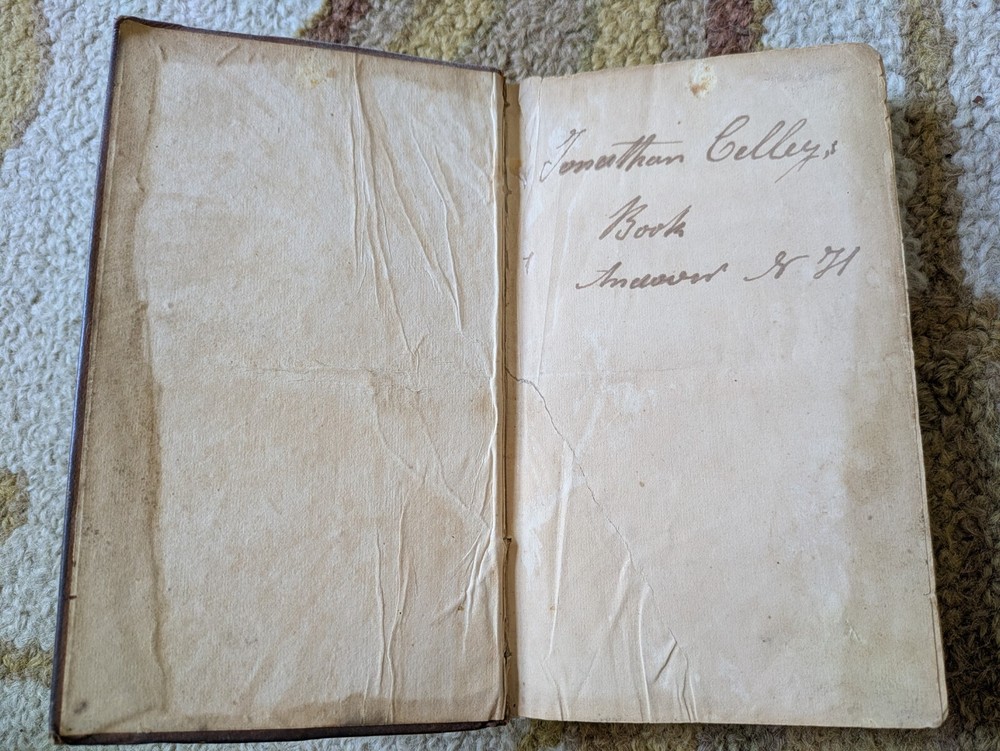 Jonathan Celley,s
Book
Andover N H